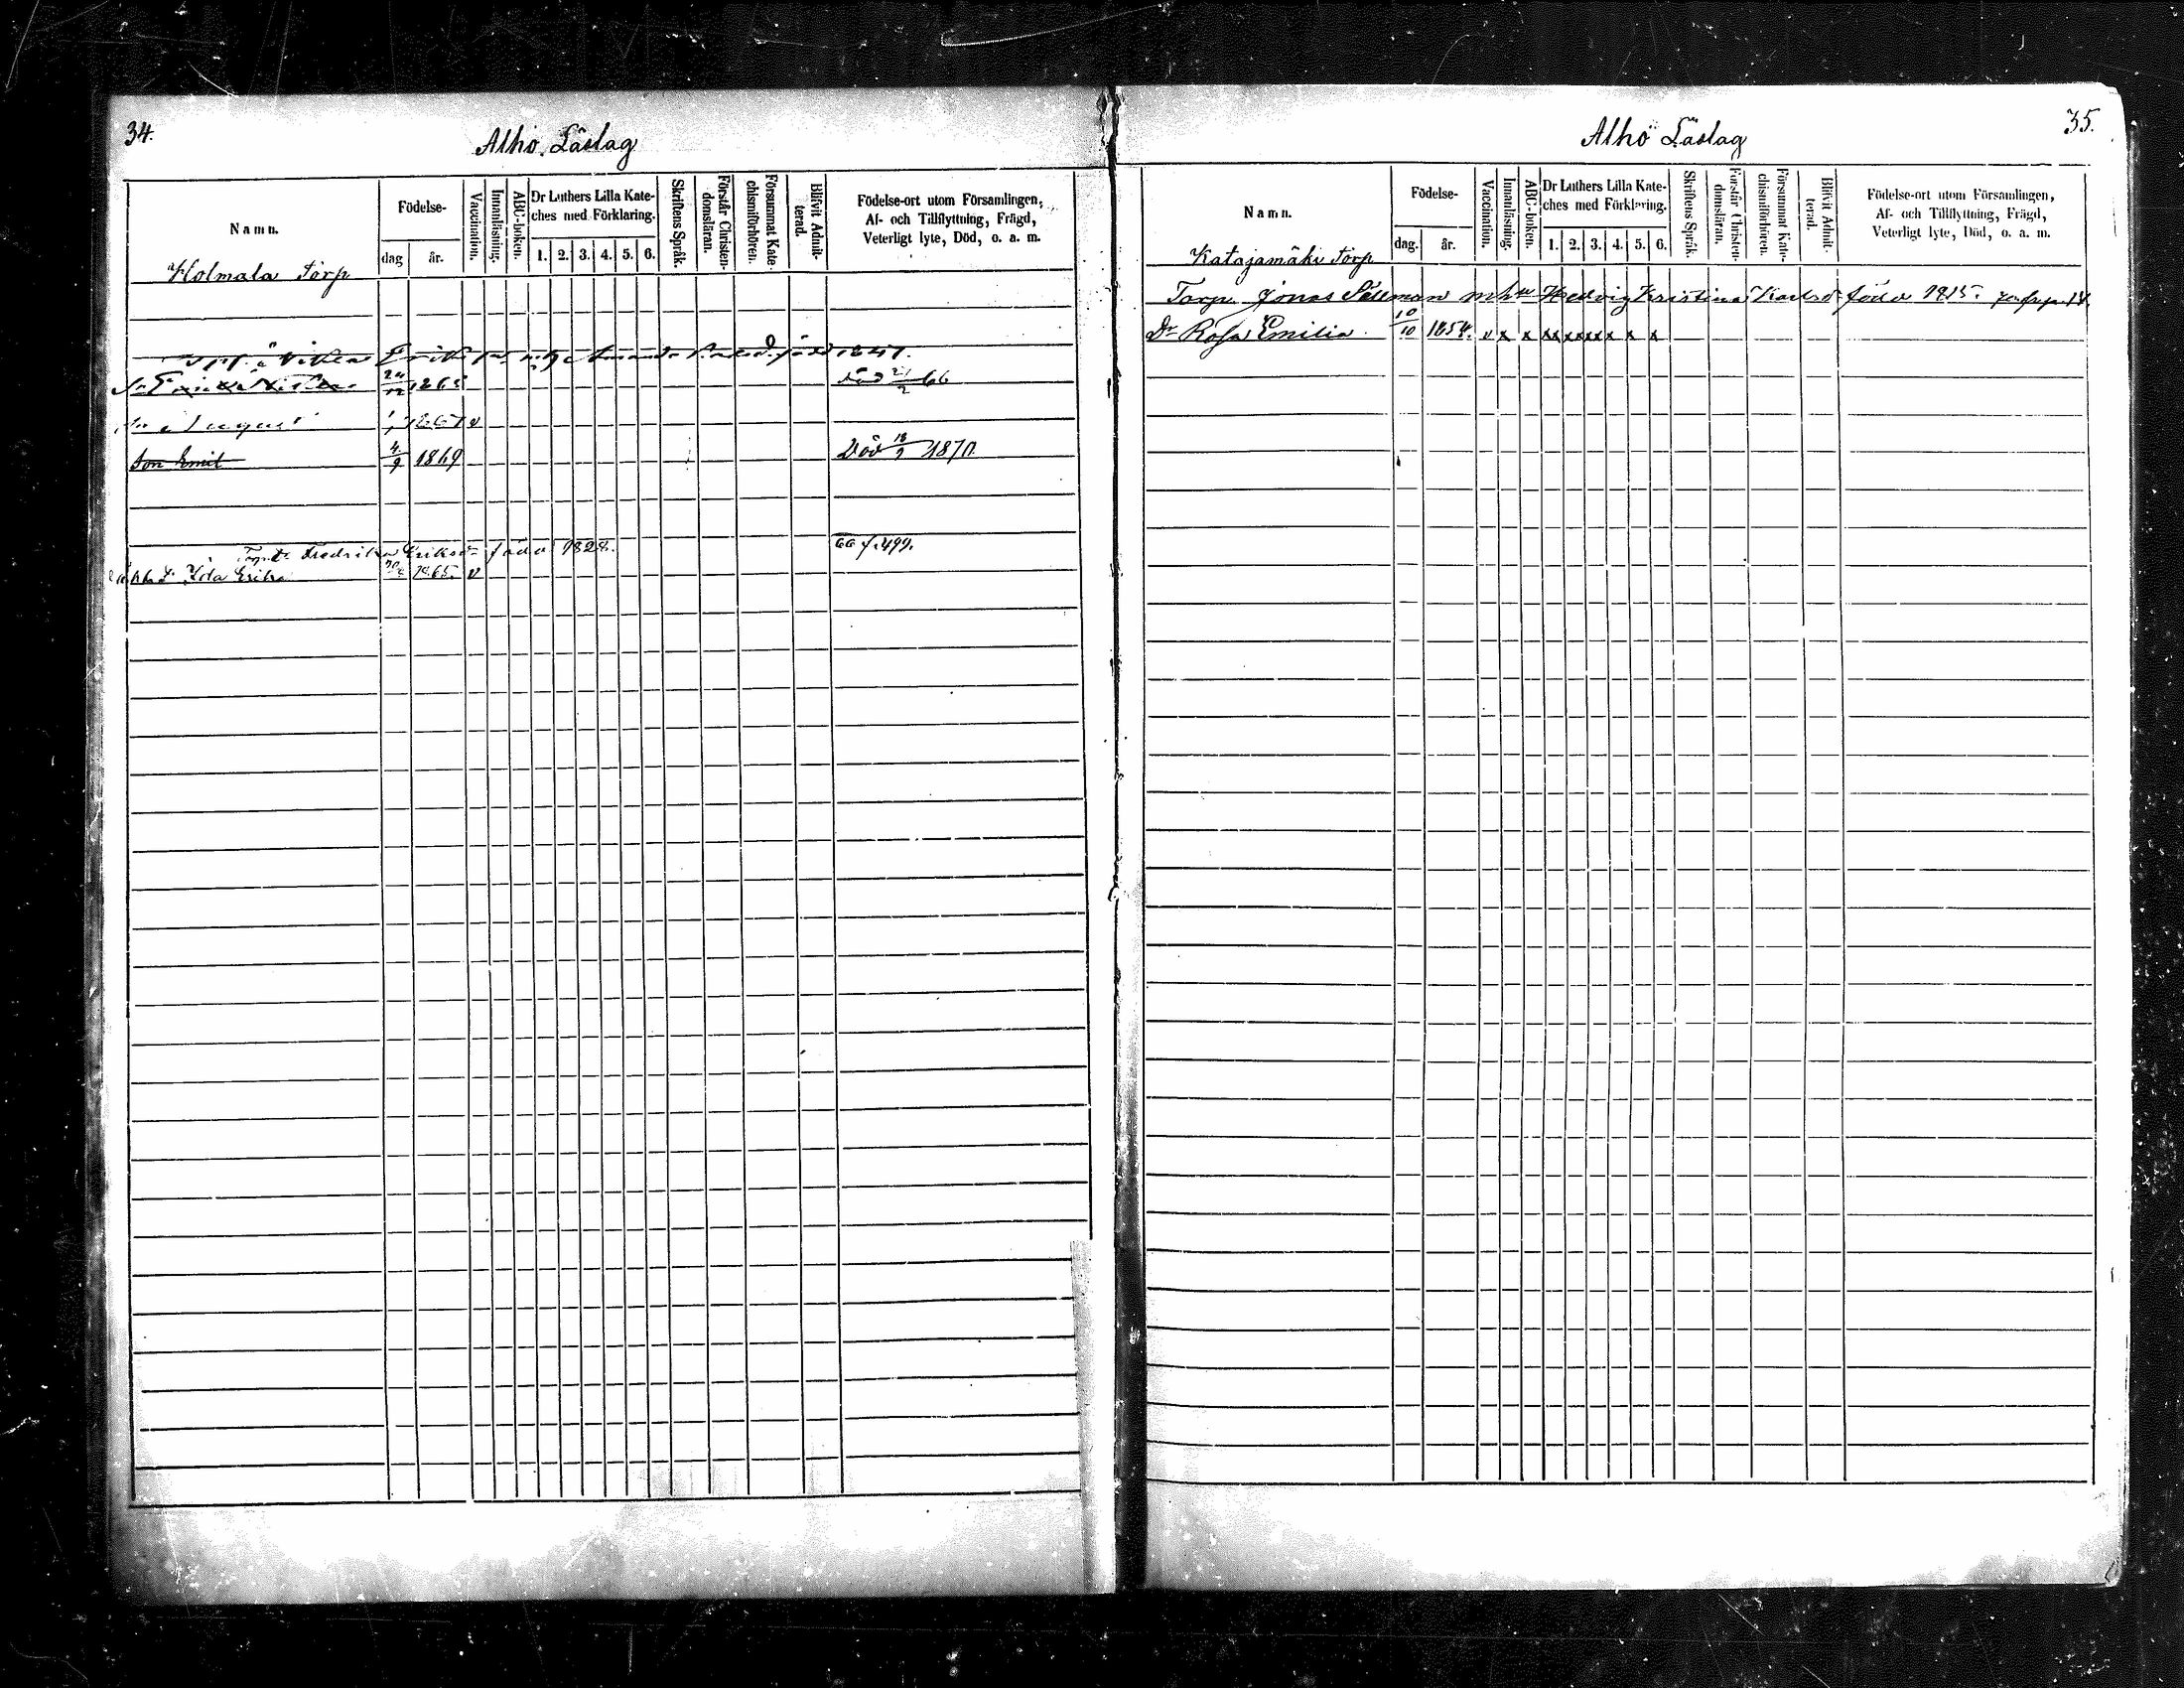 34.
Alho Läslag
Namn.
Födelse-
dag
år.
Vaccination.
Innanläsning.
ABC-boken.
Dr Luthers Lilla Kate-
ches med Förklaring.
1. 2. 3. 4. 5. 6.
Skriftens Språk.
Förstår Christen-
domsläran.
Försummat Kate-
chismiförhören.
Blifvit Admit-
terad.
Födelse-ort utom Församlingen,
Af- och Tillflyttning, Frägd,
Veterligt lyte, Död, o. a. m.
Holmala Torp
född 1847.
24/12 1865 död 21/2 66
August 1867 v
Son Emil 4/9 1869 Död 18/9 1870
Fredrika Eriksd. föda 1828. 499.
Ida Erika 1865. v
35.
Alho Läslag
Namn.
Födelse-
dag.
år.
Vaccination.
Innanläsning.
ABC-boken.
Dr Luthers Lilla Kate-
ches med Förklaring.
1. 2. 3. 4. 5. 6.
Skriftens Språk.
Förstår Christen-
domsläran.
Försummat Kate-
chismiförhören.
Blifvit Admit-
terad.
Födelse-ort utom Församlingen,
Af- och Tillflyttning, Frägd,
Veterligt lyte, Död, o. a. m.
Katajamäki Torp
Torp. Jonas mhu Hedvig Kristina Karlsd. föda 1815.
Dr Rosa Emilia 10/10 1854. v x x xx xx xx x x x